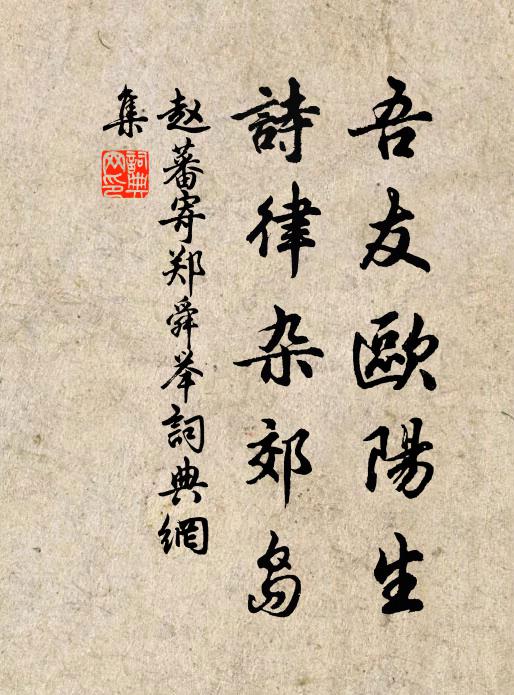 吾友歐陽生
詩律杂郊島
赵蕃寄郑舜举詞典網
集
詞典網印